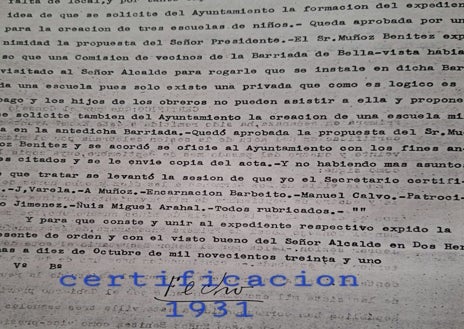 falta de local,y por tanto
idea de que se solicite del Ayuntamiento la formacion del expedien
para la creacion de tres escuelas de niños.- Queda aprobada por un
nimidad la propuesta del Señor Presidente.-El Sr.Muñoz Benitez exp
so que una Comision de vecinos de la Barriada de Bella-vista habia
visitado al Señor Alcalde para rogarle que se instale en dicha Bar
da una escuela pues solo existe una privada que como es logico es
pago y los hijos de los obreros no pueden asistir a ella y propone
e solicite tambien del Ayuntamiento la creacion de una escuela mi
a en la antedicha Barriada.-Quedó aprobada la propuesta del Sr.Mu
oz Benitez y se acordó se oficie al Ayuntamiento con los fines an
es citados y se le envie copia del acta.-Y no habiendo mas asunto
e que tratar se levantó la sesion de que yo el Secretario certifi
.-J,Varela.-A Muñoz.-Encarnacion Barbeito.-Manuel Calvo.-Patroci-
Jimenez.-Nuis Miguel Arahal.-Todos rubricados.- ""
Y para que conste y unir al expediente respectivo expido la
esente de orden y con el visto bueno del Señor Alcalde en Dos Her
mas a diez de Octubre de mil novecientos treinta y uno
Vº Bº
certificacion
Fecho
1931